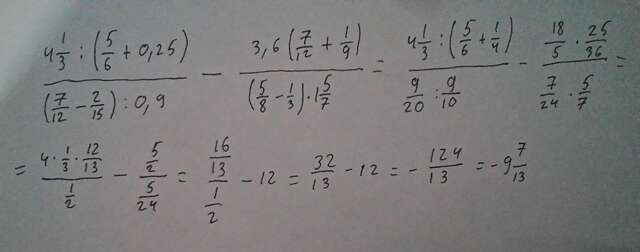 \frac{4\frac{1}{3} : (\frac{5}{6} + 0,25)}{(\frac{7}{12} - \frac{2}{15}) : 0,9} - \frac{3,6 (\frac{7}{12} + \frac{1}{9})}{(\frac{5}{8} - \frac{1}{3}) \cdot 1\frac{5}{7}} = \frac{4\frac{1}{3} : (\frac{5}{6} + \frac{1}{4})}{\frac{9}{20} : \frac{9}{10}} - \frac{\frac{18}{5} \cdot \frac{25}{36}}{\frac{7}{24} \cdot \frac{5}{7}} =
= \frac{4 \cdot \frac{1}{3} \cdot \frac{12}{13}}{\frac{1}{2}} - \frac{\frac{5}{2}}{\frac{5}{24}} = \frac{\frac{16}{13}}{\frac{1}{2}} - 12 = \frac{32}{13} - 12 = - \frac{124}{13} = -9\frac{7}{13}